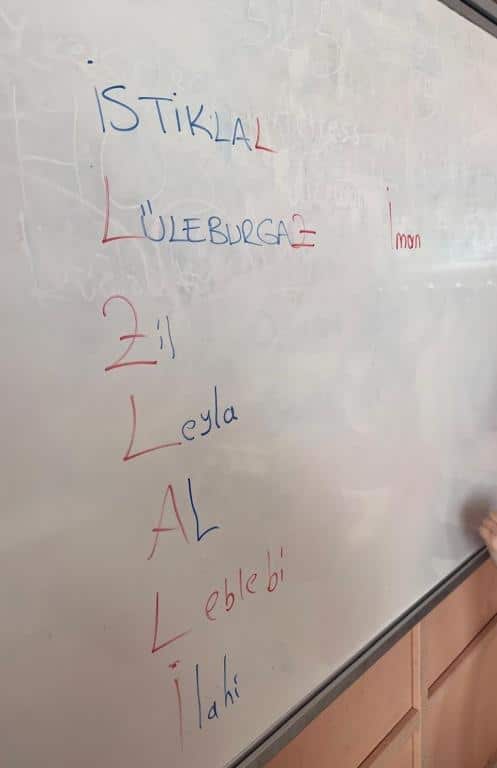 İSTİKLAL
LÜLEBURGAZ İman
Zil
Leyla
AL
Leblebi
İlahi